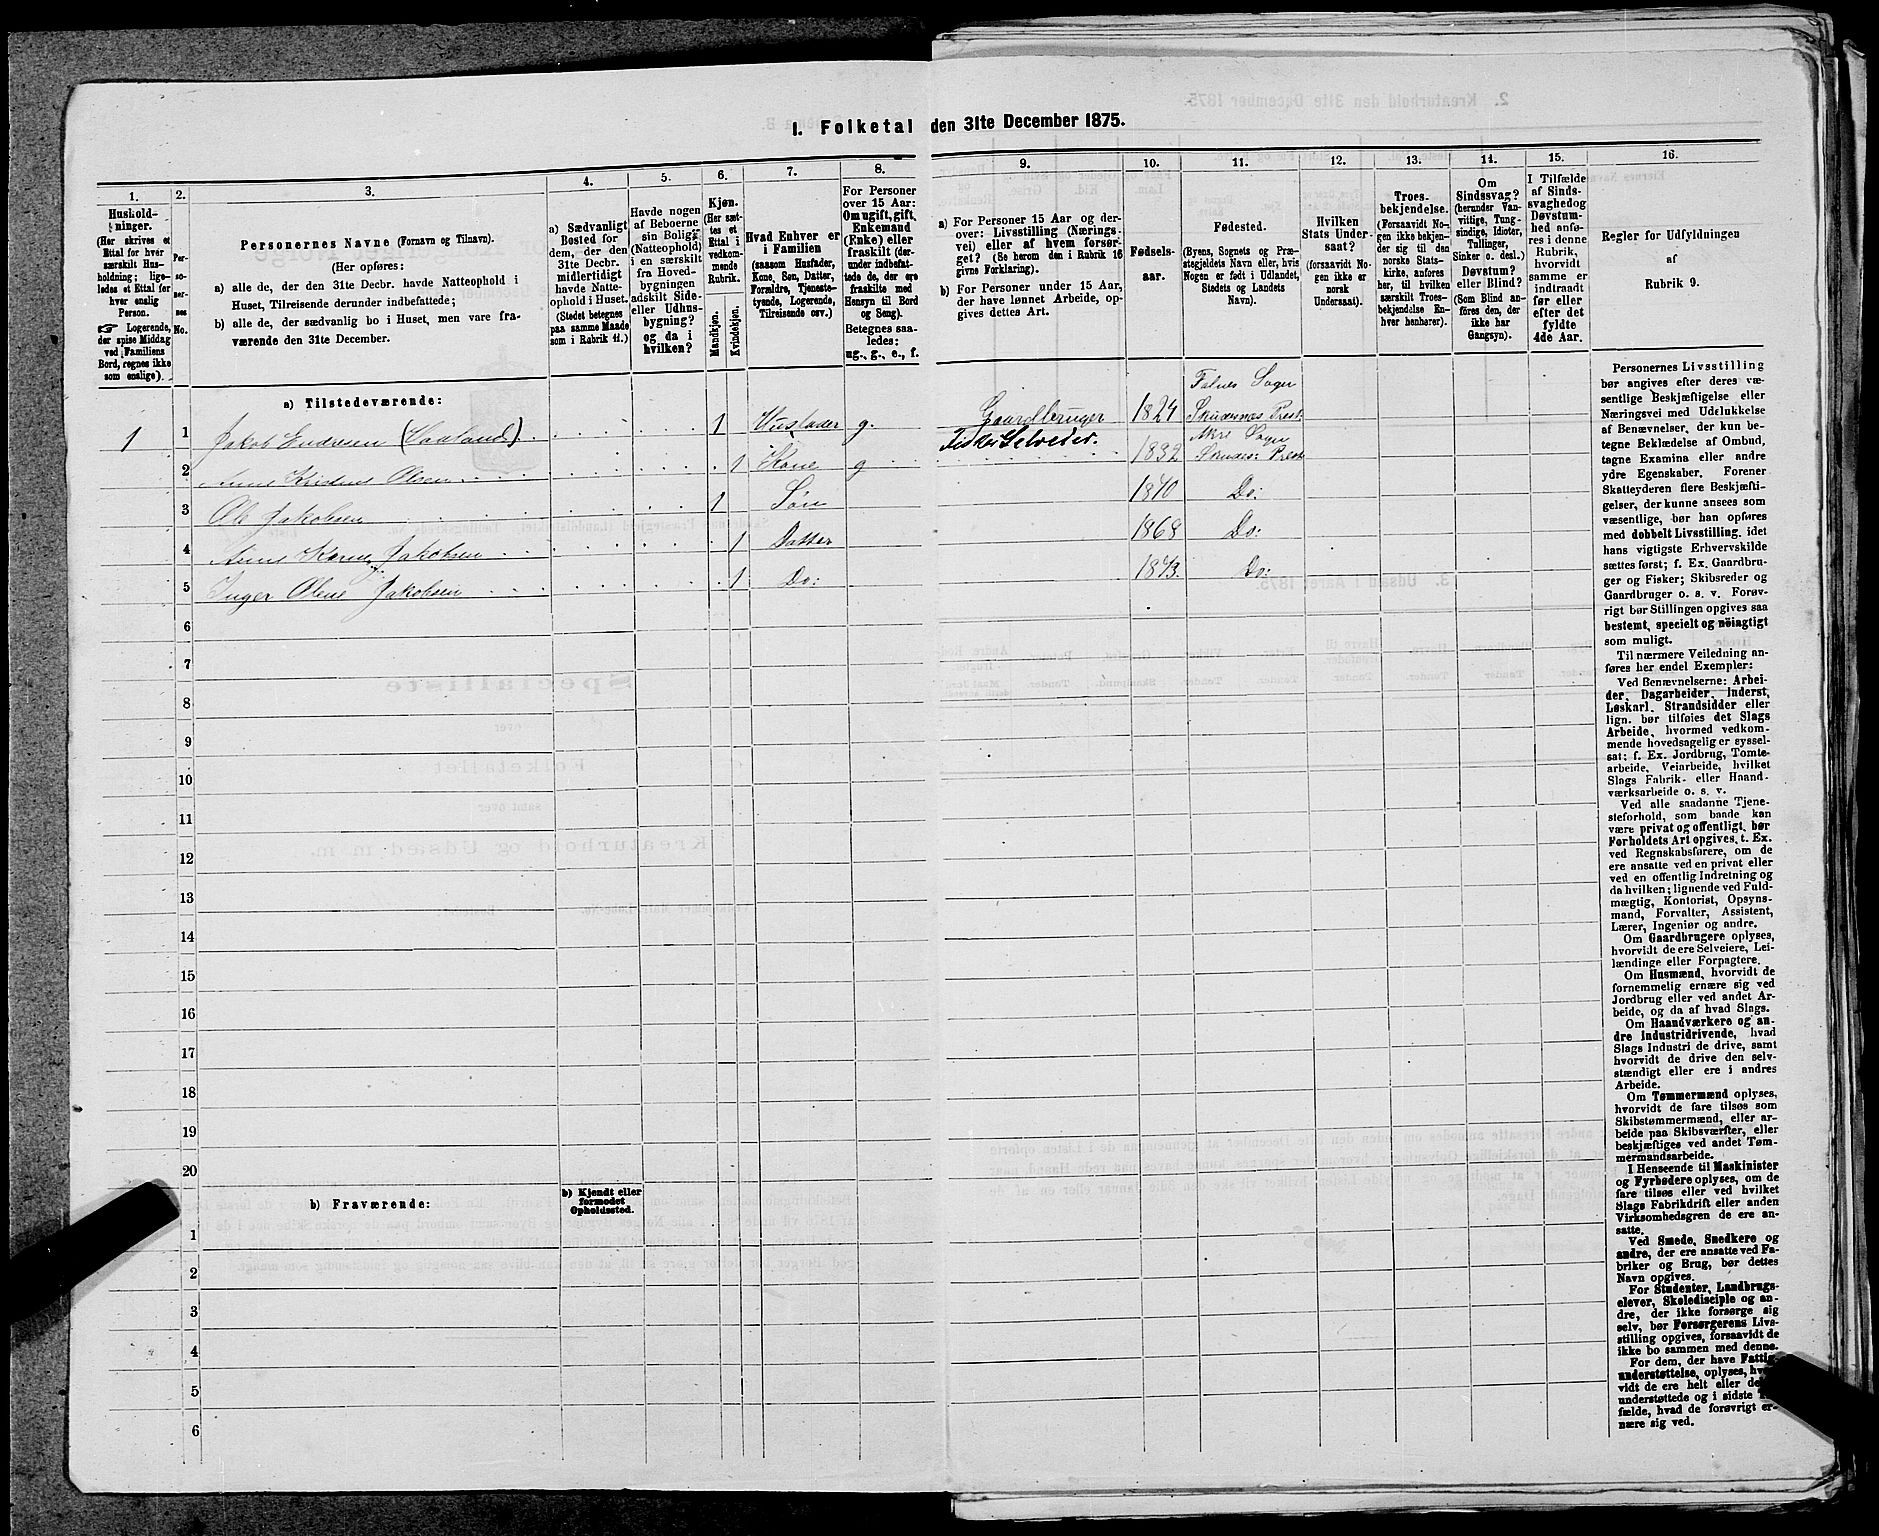 I. Folketal den 31te December 1875.
1.
Hushold-
ninger.
(Her skrives et
Ettal for hver
særskilt Hus-
holdning; lige-
ledes et Ettal for
hver enslig
Person.
☞ Logerende,
der spise Middag
ved Familiens
Bord, regnes ikke
som enslige).
2.
Per-
so-
ner-
nes
No.
3.
Personernes Navne (Fornavn og Tilnavn).
(Her opføres:
a) alle de, der den 31te Decbr. havde Natteophold i
Huset, Tilreisende derunder indbefattede;
b) alle de, der sædvanlig bo i Huset, men vare fra-
værende den 31te December.
4.
a) Sædvanligt
Bosted for
dem, der den
31te Decbr.
midlertidigt
havde Natte-
ophold i Huset.
(Stedet betegnes
paa samme Maade
som i Rubrik 11.)
5.
Havde nogen
af Beboerne
sin Bolig
(Natteophold)
i en særskilt
fra Hoved-
bygningen
adskilt Side-
eller Udhus-
bygning?
og da i
hvilken?
6.
Kjøn.
(Her sæt-
tes et
Ettal i
vedkom-
mende
Rubrik.
Mandkjøn.
Kvindekjøn.
7.
Hvad Enhver er
i Familien
(saasom Husfader,
Kone, Søn, Datter,
Forældre, Tjeneste-
tyende, Logerende,
Tilreisende osv.)
8.
For Personer
over 15 Aar:
Om ugift, gift,
Enkemand
(Enke) eller
fraskilt (der-
under indbefat-
tede de, der ere
fraskilte med
Hensyn til Bord
og Seng).
Betegnes saa-
ledes:
ug., g., e., f.
9.
a) For Personer 15 Aar og der-
over: Livsstilling (Nærings-
vei) eller af hvem forsør-
get? (Se herom den i Rubrik 16
givne Forklaring).
b) For Personer under 15 Aar,
der have lønnet Arbeide, op-
gives dettes Art.
10.
Fødsels-
aar.
11.
Fødested.
(Byens, Sognets og Præ-
stegjeldets Navn eller, hvis
Nogen er født i Udlandet,
Stedets og Landets
Navn).
12.
Hvilken
Stats Under-
saat?
(forsaavidt No-
gen ikke er
norsk
Undersaat).
13.
Troes-
bekjendelse.
(Forsaavidt No-
gen ikke bekjen-
der sig til den
norske Stats-
kirke, anføres
her, til hvilken
særskilt Troes-
bekjendelse En-
hver henhører).
14.
Om
Sindssvag?
(herunder Van-
vittige, Tung-
sindige, Idioter,
Tullinger,
Sinker o. desl.)
Døvstum?
eller Blind?
(Som Blind an-
føres den, der
ikke har
Gangsyn).
15.
I Tilfælde
af Sinds-
svaghed og
Døvstum-
hed anfø-
res i denne
Rubrik,
hvorvidt
samme er
indtraadt
før eller
efter det
fyldte
4de Aar.
16.
Regler for Udfyldningen
af
Rubrik 9.
a) Tilstedeværende:
1 1 Jakob Endresen (Vaaland) 1 Husfader g. Gaardbruger Fisker Selveier. 1824 Falnes Sogn Skudesnes Prest:
2 Anne Kristine Olsen 1 Kone g 1832 Akre Sogn Skudes: Prest
3 Ole Jakobsen 1 Søn 1870 Do:
4 Anne Karine Jakobsen 1 Datter 1868 Do:
5 Inger Oline Jakobsen 1 Do: 1873. Do:
6
7
8
9
10
11
12
13
14
15
16
17
18
19
20
b) Fraværende:
b) Kjendt eller
formodet
Opholdssted.
1
2
3
4
5
6
Personernes Livsstilling
bør angives efter deres væ-
sentlige Beskjæftigelse eller
Næringsvei med Udelukkelse
af Benævnelser, der kun be-
tegne Beklædelse af Ombud,
tagne Examina eller andre
ydre Egenskaber. Forener
Skatteyderen flere Beskjæfti-
gelser, der kunne ansees som
væsentlige, bør han opføres
med dobbelt Livsstilling, idet
hans vigtigste Erhvervskilde
sættes først; f. Ex. Gaardbru-
ger og Fisker; Skibsreder og
Gaardbruger o. s. v. Forøv-
rigt bør Stillingen opgives saa
bestemt, specielt og nøiagtigt
som muligt.
Til nærmere Veiledning an-
føres her endel Exempler:
Ved Benævnelserne: Arbei-
der, Dagarbeider, Inderst,
Løskarl, Strandsidder eller
lign. bør tilføies det Slags
Arbeide, hvormed vedkom-
mende hovedsagelig er syssel-
sat; f. Ex. Jordbrug, Tomte-
arbeide, Veiarbeide, hvilket
Slags Fabrik- eller Haand-
værksarbeide o. s. v.
Ved alle saadanne Tjene-
steforhold, som baade kan
være privat og offentligt, bør
Forholdets Art opgives, t. Ex.
ved Regnskabsførere, om de
ere ansatte ved en privat eller
ved en offentlig Indretning og
da hvilken; lignende ved Fuld-
mægtig, Kontorist, Opsyns-
mand, Forvalter, Assistent,
Lærer, Ingeniør og andre.
Om Gaardbrugere oplyses,
hvorvidt de ere Selveiere, Lei-
lændinge eller Forpagtere.
Om Husmænd, hvorvidt de
fornemmelig ernære sig ved
Jordbrug eller ved andet Ar-
beide, og da af hvad Slags.
Om Haandværkere og an-
dre Industridrivende, hvad
Slags Industri de drive, samt
hvorvidt de drive den selv-
stændigt eller ere i andres
Arbeide.
Om Tømmermænd oplyses,
hvorvidt de fare tilsøs som
Skibstømmermænd, eller ar-
beide paa Skibsværfter, eller
beskjæftiges ved andet Tøm-
mermandsarbeide.
I Henseende til Maskinister
og Fyrbødere oplyses, om de
fare tilsøs eller ved hvilket
Slags Fabrikdrift eller anden
Virksomhedsgren de ere an-
satte.
Ved Smede, Snedkere og
andre, der ere ansatte ved Fa-
briker og Brug, bør dettes
Navn opgives.
For Studenter, Landbrugs-
elever, Skoledisciple og an-
dre, der ikke forsørge sig
selv, bør Forsørgerens Livs-
stilling opgives, forsaavidt de
ikke bo sammen med denne.
For dem, der have Fattig-
understøttelse, oplyses, hvor-
vidt de ere helt eller
understøttede og i sidste
fælde, hvad de forøvrigt er-
nære sig ved.